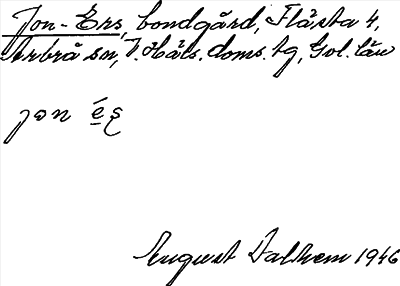 Jon-Ers, bondgård, Flästa 4,
Arbrå sn, V. Häls. doms. tg, Gvl. län
jon é̲s̨
August Dalhem 1946